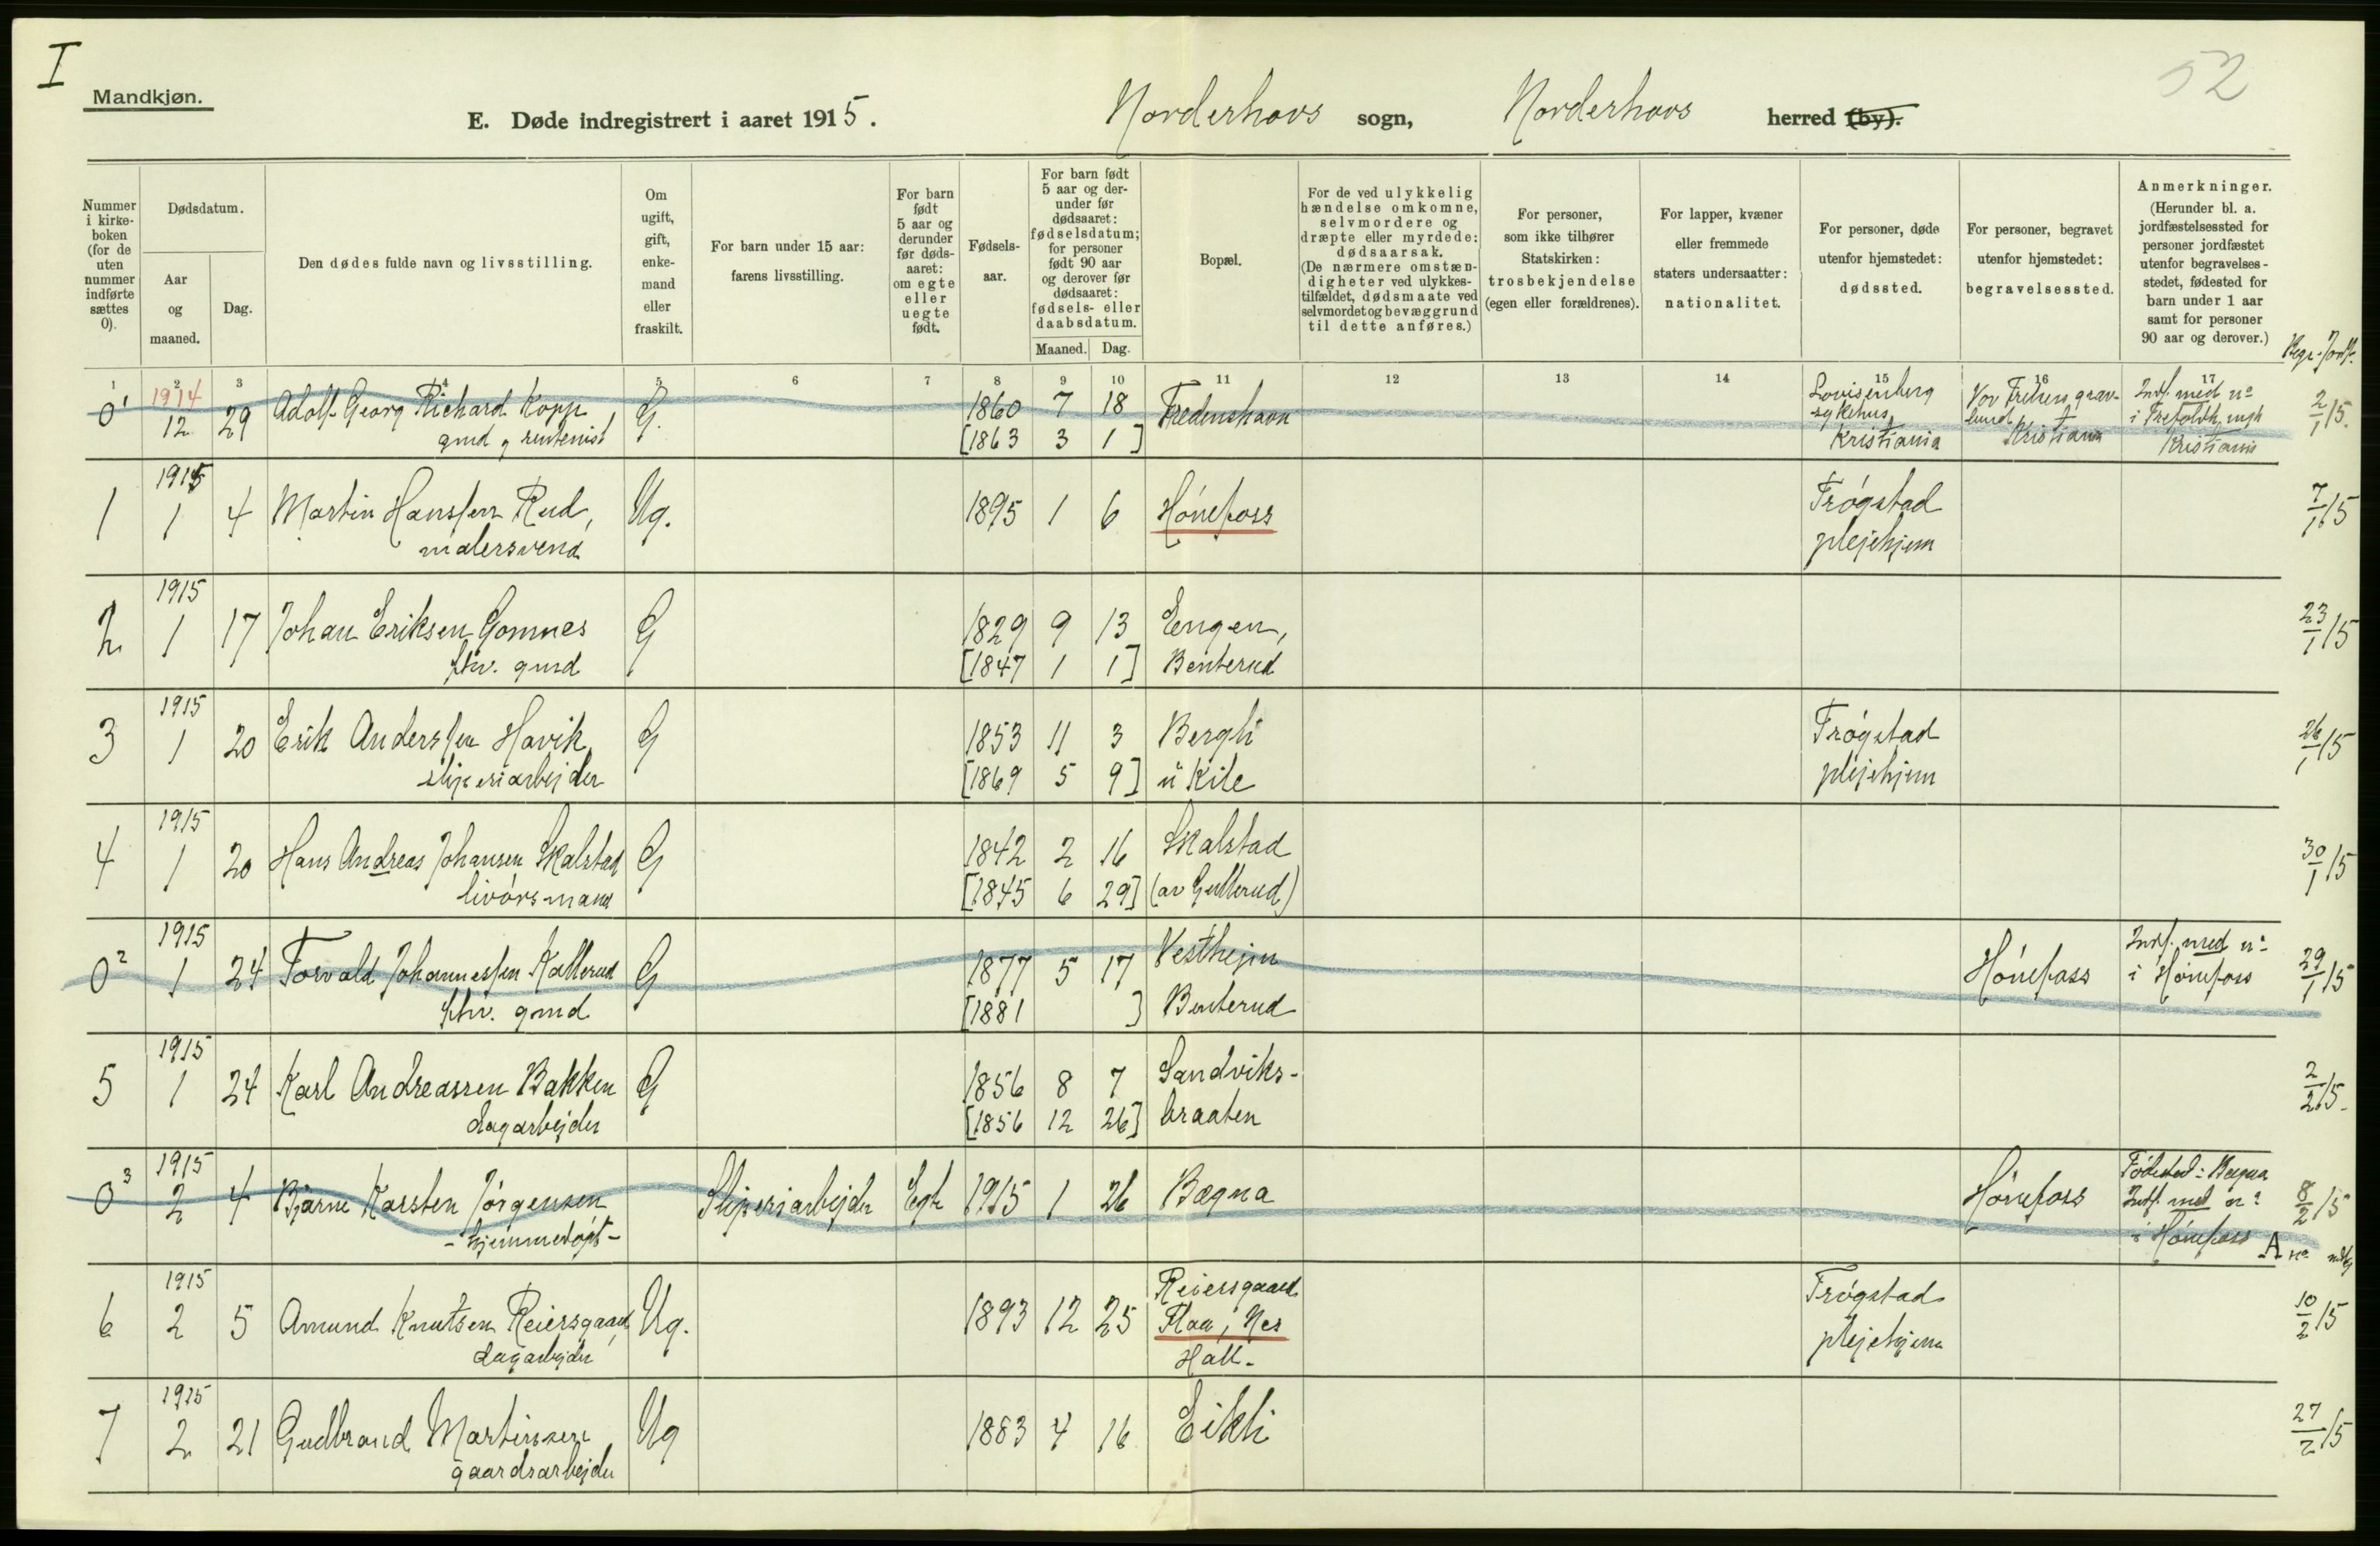 I
52
Mandkjøn.
E. Døde indregistrert i aaret 1915. Norderhovs sogn, Norderhovs herred (by).
Nummer i kirke-boken (for de uten nummer indførte sættes 0).
Dødsdatum.
Aar og maaned.
Dag.
Den dødes fulde navn og livsstilling.
Om ugift, gift, enke-mand eller fraskilt.
For barn under 15 aar: farens livsstilling.
For barn født 5 aar og derunder før døds-aaret: om egte eller uegte født.
Fødsels-aar.
For barn født 5 aar og der-under før dødsaaret: fødselsdatum; for personer født 90 aar og derover før dødsaaret: fødsels- eller daabsdatum.
Maaned. Dag.
Bopæl.
For de ved ulykkelig hændelse omkomne, selvmordere og dræpte eller myrdede: dødsaarsak. (De nærmere omstæn-digheter ved ulykkes-tilfældet, dødsmaate ved selvmordet og bevæggrund til dette anføres.)
For personer, som ikke tilhører Statskirken: trosbekjendelse (egen eller forældrenes).
For lapper, kvæner eller fremmede staters undersaatter: nationalitet.
For personer, døde utenfor hjemstedet: dødssted.
For personer, begravet utenfor hjemstedet: begravelsessted.
Anmerkninger. (Herunder bl. a. jordfæstelsessted for personer jordfæstet utenfor begravelses-stedet, fødested for barn under 1 aar samt for personer 90 aar og derover.)
Begr.-Jordf.
1 2 3 4 5 6 7 8 9 10 11 12 13 14 15 16 17
0¹ 1914 12 29 Adolf Georg Richard Kopp, G. 1860 7 18 Fredenshavn Lovisenberg sykehus Kristiania Vor Frelsers grav-lund Kristiania Indf. med no i Kristiania 2/1 15.
gmd og rentenist [1863 3 1]
1 1915 1 4 Martin Hanssen Rud, Ug. 1895 1 6 Hønefoss Frøgstad 7/1 15
malersvend plejehjem
2 1915 1 17 Johan Eriksen Gomnes G 1829 9 13 Engen, 23/1 15
fhv. gmd [1847 1 1] Benterud
3 1915 1 20 Erik Anderssen Havik G 1853 11 3 Bergli Frøgstad 26/1 15
sliperiarbejder [1869 5 9] u Kile plejehjem
4 1915 1 20 Hans Andreas Johansen Skalstad G 1842 2 16 Skalstad 30/1 15
livørsmand [1845 6 29] (av Gullerud)
0² 1915 1 24 Torvald Johannessen Kallerud G 1877 5 17 Vesthejm Hønefoss Indf. med no i Hønefoss 29/1 15
fhv. gmd [1881 ] Benterud
5 1915 1 24 Karl Andreassen Bakken G 1856 8 7 Sandviks- 2/2 15.
dagarbejder [1856 12 26] braaten
0³ 1915 2 4 Bjarne Karsten Jørgensen Sliperiarbejder Egte 1915 1 26 Bægna Hønefoss Fødested: Bægna Indf. med no i Hønefoss 8/2 15
- hjemmedøpt - A no
6 1915 2 5 Amund Knutsen Reiersgaard, Ug. 1893 12 25 Reiersgaard Flaa, Nes Hall. Frøgstad 10/2 15
dagarbejder plejehjem
7 1915 2 21 Gudbrand Martinsen Ug 1883 4 16 Eikli 27/2 15
gaardsarbejder